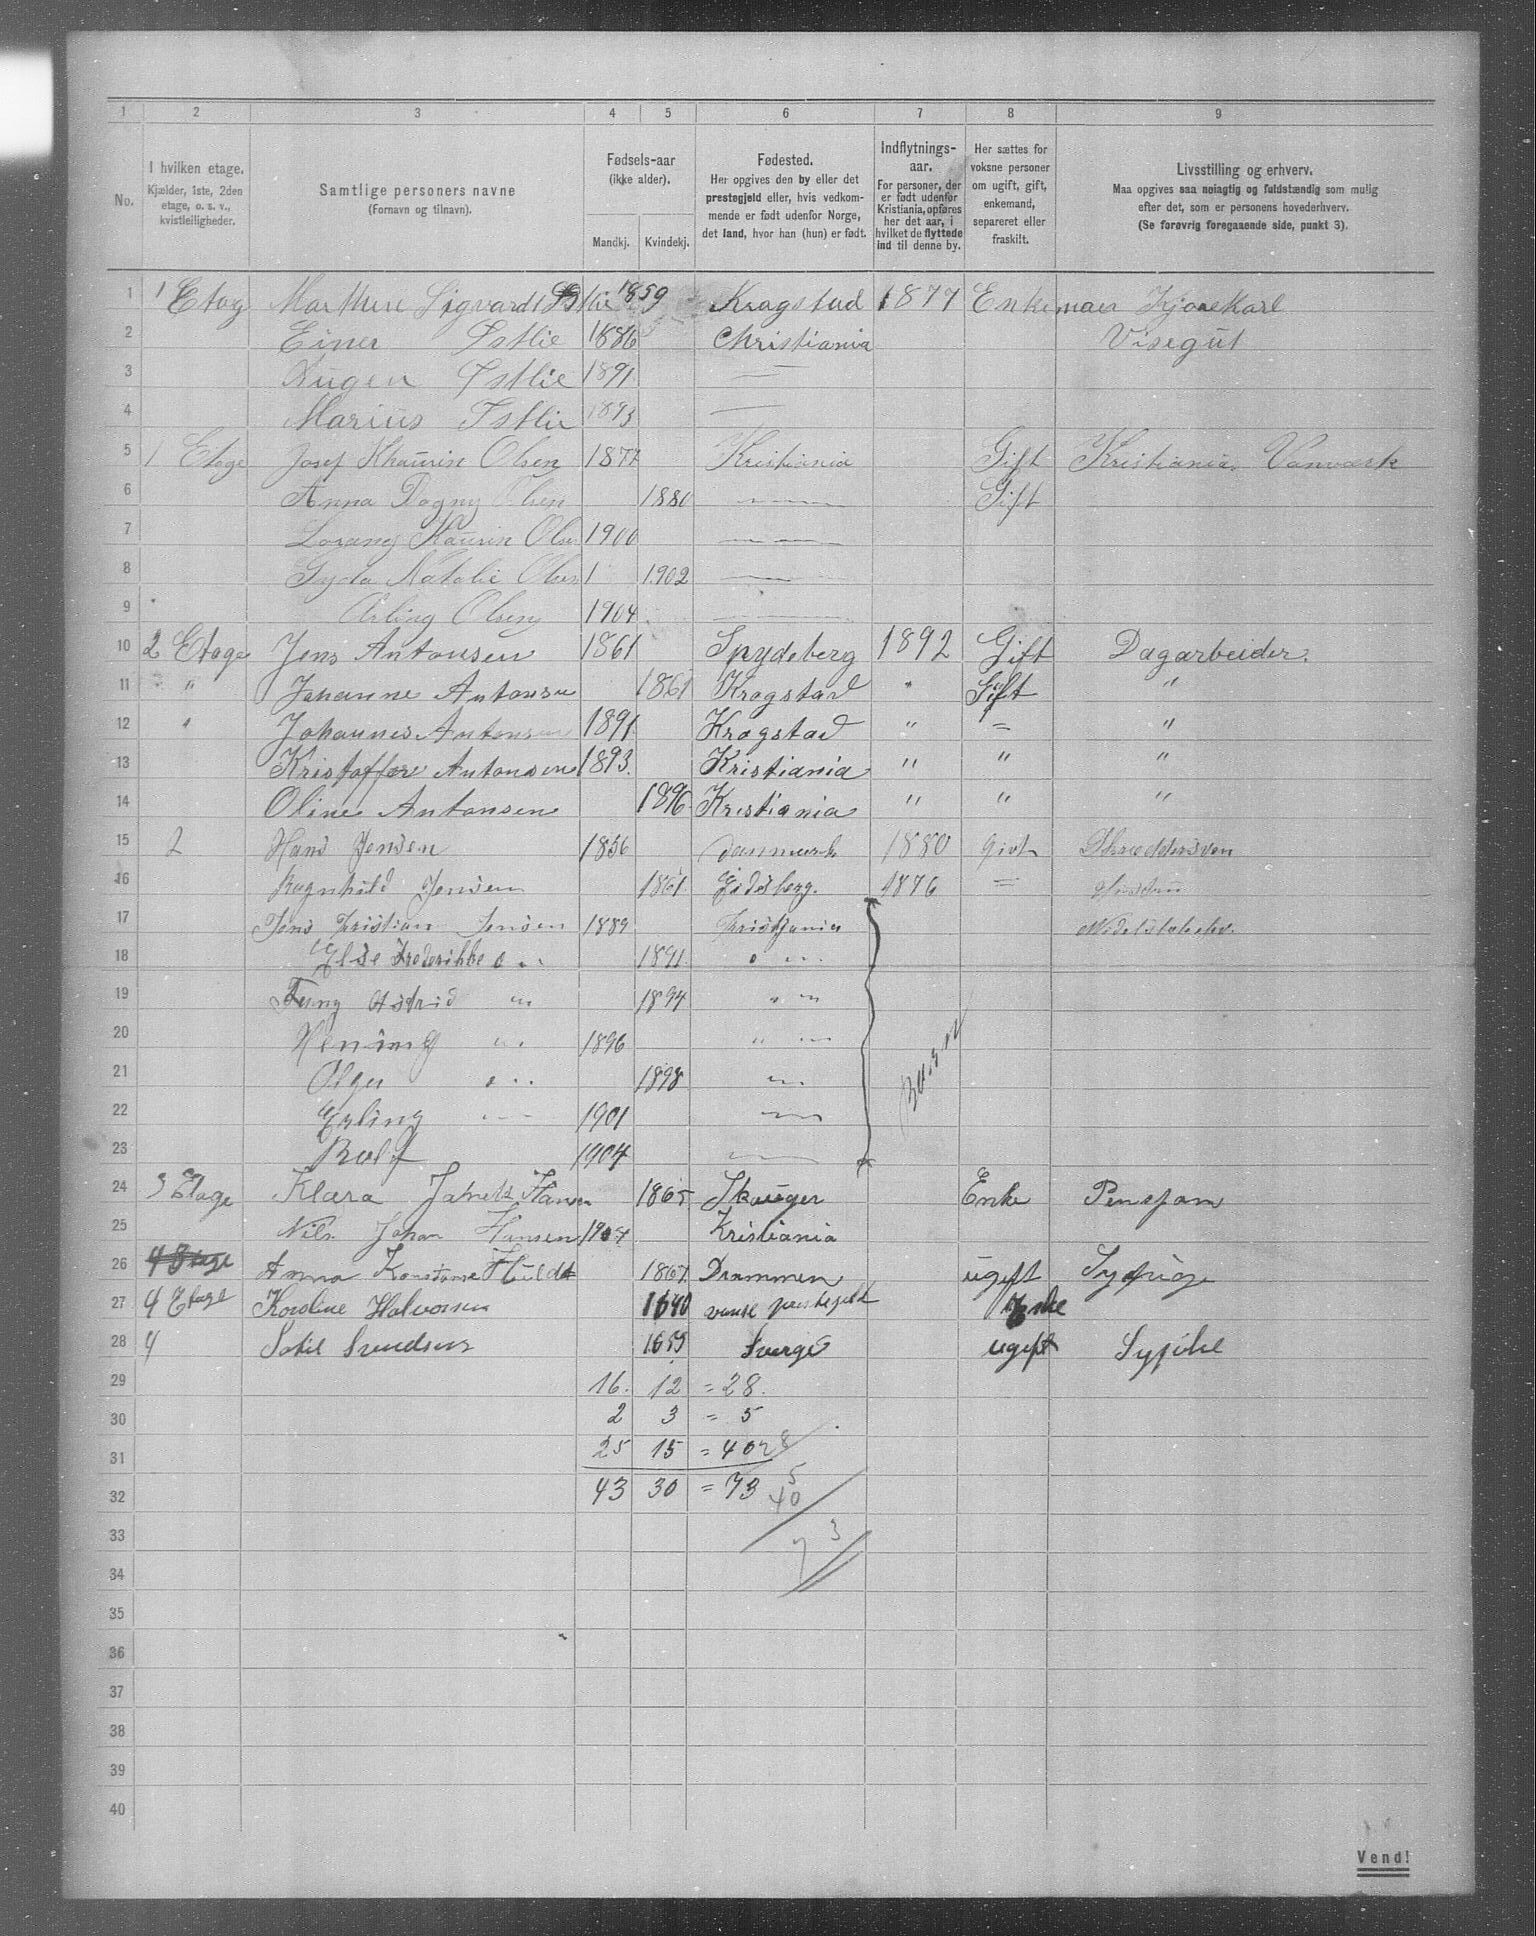 1 2 3 4 5 6 7 8 9
No.
I hvilken etage.
Kjælder, 1ste, 2den
etage, o. s. v.,
kvistleiligheder.
Samtlige personers navne
(Fornavn og tilnavn).
Fødsels-aar
(ikke alder).
Mandkj. Kvindekj.
Fødested.
Her opgives den by eller det
prestegjeld eller, hvis vedkom-
mende er født udenfor Norge,
det land, hvor han (hun) er født.
Indflytnings-
aar.
For personer, der
er født udenfor
Kristiania, opføres
her det aar, i
hvilket de flyttede
ind til denne by.
Her sættes for
voksne personer
om ugift, gift,
enkemand,
separeret eller
fraskilt.
Livsstilling og erhverv.
Maa opgives saa nøiagtig og fuldstændig som mulig
efter det, som er personens hovederhverv.
(Se forøvrig foregaaende side, punkt 3).
1 1 Etag Sigvardt 1859 Kragstad 1877 Kjørekarl
2 Einer Østlie 1886 Christiania Visegut
3 Østlie 1891 —
4 Marius Østlie 1893 —
5 1 Etage Josef Olsen 1877 Kristiania Gift Kristiania
6 Anna Dagny Olsen 1880 — Gift
7 Olsen 1900 —
8 Natalie Olsen 1 1902 —
9 Olsen 1904 —
10 2 Etage Jens Antonsen 1861 Spydeberg 1892 Gift Dagarbeider.
11 " Johanne Antonsen 1861 Krogstad " Gift "
12 " Johannes Antonsen 1891 Krogstad " = "
13 Kristoffer Antonsen 1893. Kristiania " " "
14 Oline Antonsen 1896 Kristiania " " "
15 2 Hans Jensen 1856 Danmark 1880 givt
16 Ragnhild Jensen 1861 Eidsberg. 1876 =
17 Jens Kristian Jensen 1889 Kristjania
18 Else Frederikke " 1891 "
19 Astrid " 1894 "
20 Hening " 1896 "
21 Olga " 1898 "
22 Erling " 1901 "
23 Rolf 1904 —
24 3 Etage Klara Hansen 1865 Skauger Enke Pensjon
25 Nils Johan Hansen 1904 Kristiania
26 4 Etage Anna Konstanse Huldt 1867 Drammen ugift
27 4 Etage Karoline Halvorsen 1840 prestegeld Enke
28 4 Svendsen 1855 Sverge ugift
29 16. 12 = 28.
30 2 3 = 5
31 25 15 = 40 28
32 43 30 = 73 5
40
33 73
34
35
36
37
38
39
40
Vend!